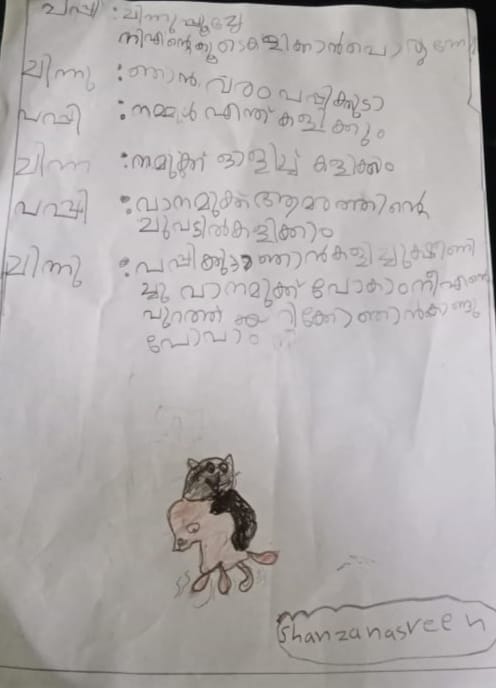 പപ്പി : ചിന്നു പൂച്ചേ
നീഎൻ്റെകൂടെകളിക്കാൻപൊരുന്നോ
ചിന്നു : ഞാൻ വരാം പപ്പിക്കുട്ടാ
പപ്പി : നമ്മൾ എന്ത് കളിക്കും
ചിന്നു : നമുക്ക് ഒളിച്ച് കളിക്കാം
പപ്പി : വാനമുക്ക്ആമരത്തിൻ്റെ
ചുവട്ടിൽകളിക്കാം
ചിന്നു : പപ്പിക്കുട്ടാഞാൻകളിച്ചുക്ഷീണി
ച്ചു വാനമുക്ക് പോകാംനീഎൻ്റെ
പുറത്ത് കേറിക്കോഞാൻകൊണ്ടു
പോവാം
Shanzanasreen